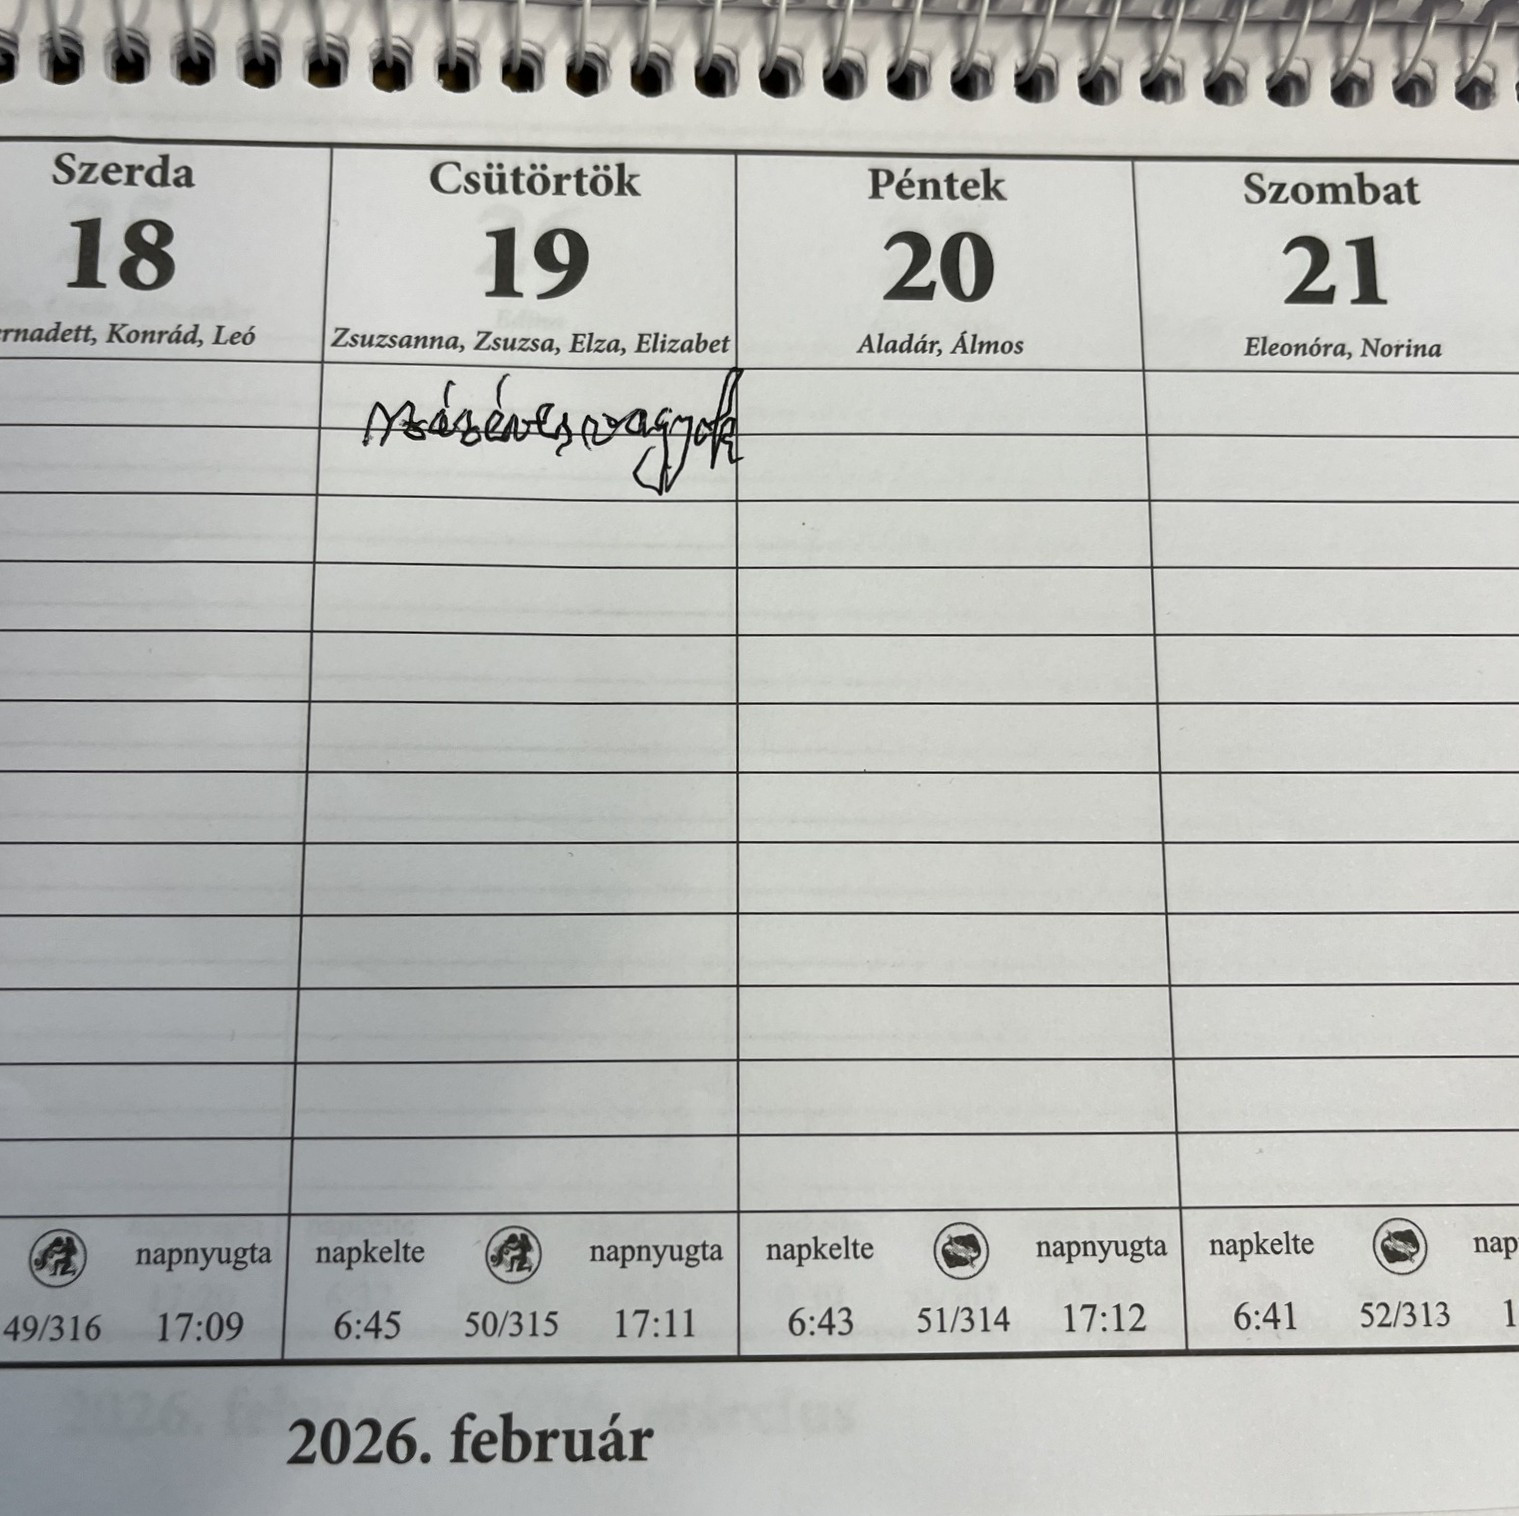 Szerda Csütörtök Péntek Szombat
18 19 20 21
rnadett, Konrád, Leó Zsuzsanna, Zsuzsa, Elza, Elizabet Aladár, Álmos Eleonóra, Norina
vagyok
napnyugta napkelte napnyugta napkelte napnyugta napkelte nap
49/316 17:09 6:45 50/315 17:11 6:43 51/314 17:12 6:41 52/313 1
2026. február